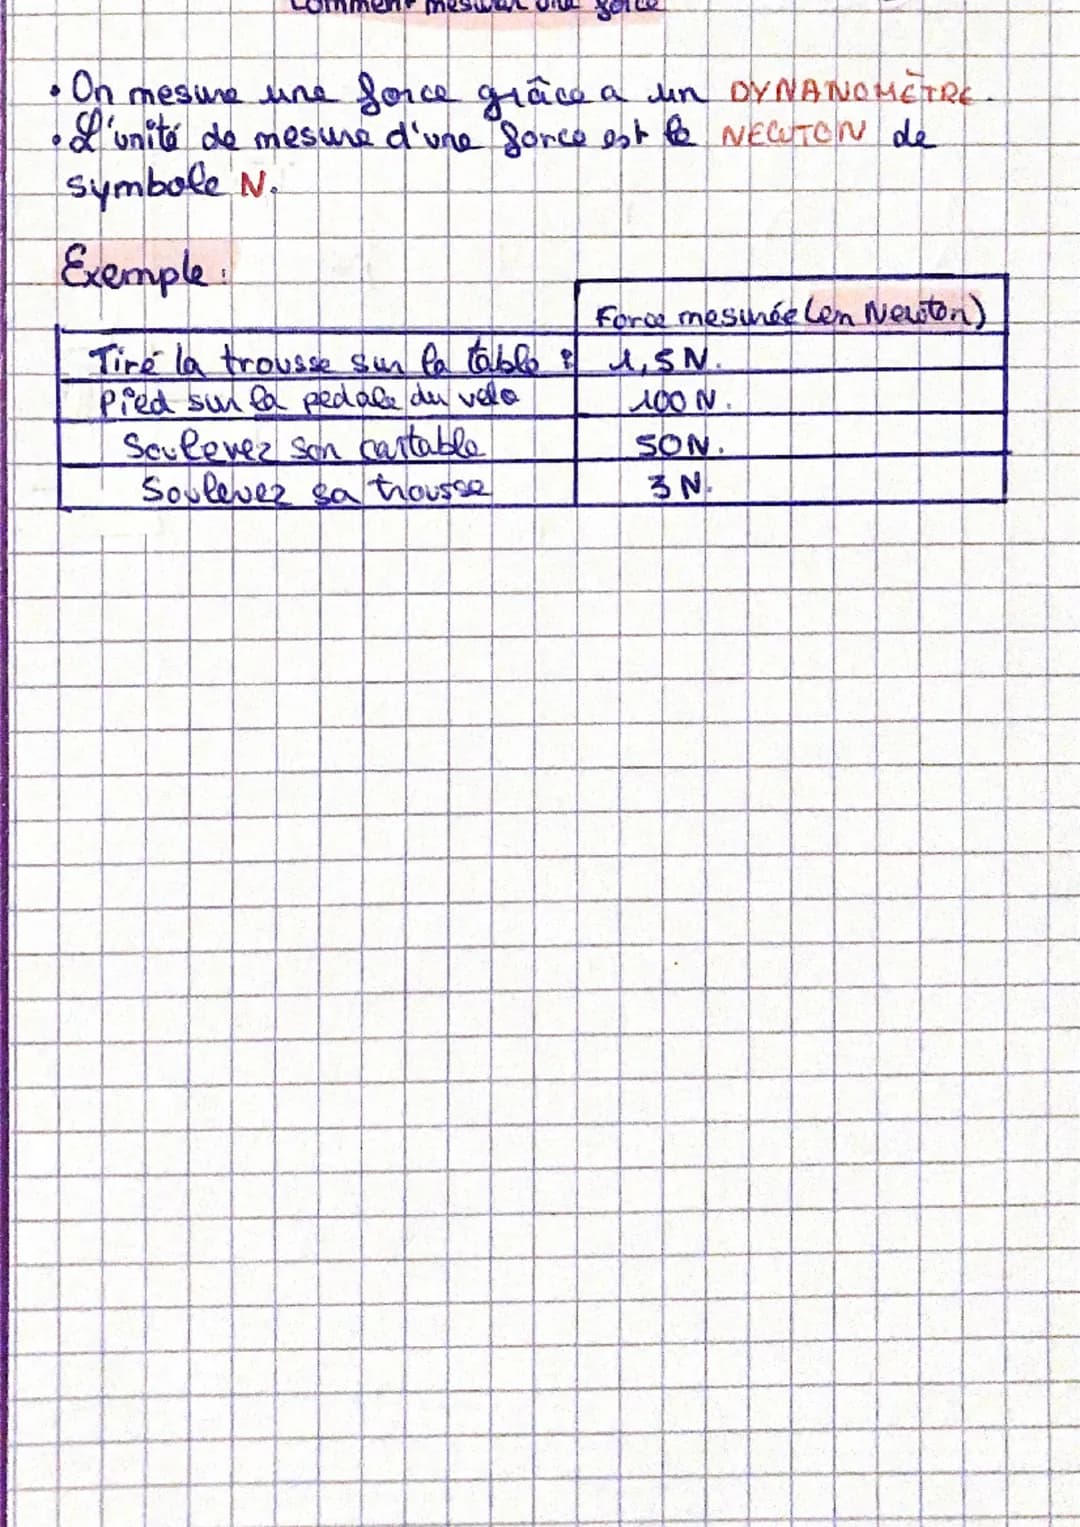 Comment mesurer une force
• On mesure une force grâce a un DYNANOMÈTRE.
• L'unité de mesure d'une force est le NEWTON de
symbole N.
Exemple :
Force mesurée (en Newton)
Tiré la trousse sur la table : 1,5 N.
Pied sur la pedale du velo 100 N.
Soulevez son cartable 50 N.
Soulevez sa trousse 3 N.